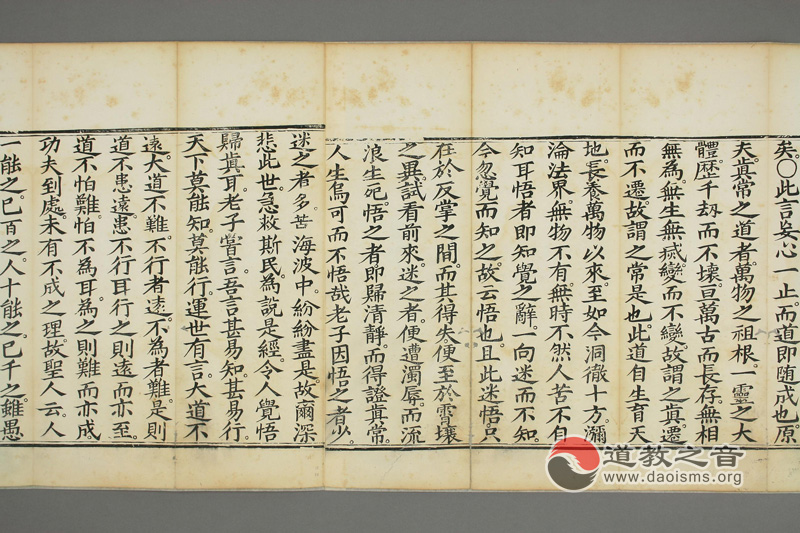 矣。〇此言妄心一止。而道即随成也。原
夫眞常之道者。萬物之祖根。一靈之大
體。歷千刼而不壞。亘萬古而長存。無相
無為。無生無滅。變而不變。故謂之眞。遷
而不遷。故謂之常是也。此道自生育天
地。長養萬物以來。至如今洞徹十方。瀰
淪法界。無物不有。無時不然。人苦不自
知耳。悟者即知覺之辭。一向迷而不知。
今忽覺而知之。故云悟也。且此迷悟只
在於反掌之間。而其得失。便至於霄壤
之異。試看前來迷之者。便遭濁辱。而流
浪生死。悟之者即歸清靜。而得證眞常。
人生烏可而不悟哉。老子因悟之者少。
迷之者多。苦海波中。紛紛盡是。故爾深
悲此世。急救斯民。為說是經。令人覺悟
歸眞耳。老子嘗言。吾言甚易知甚易行。
天下莫能知。莫能行。運世有言。大道不
遠。大道不難。不行者遠。不為者難。是則
道不患遠。患不行耳。行之則遠而亦至。
道不怕難。怕不為耳。為之則難而亦成。
功夫到處。未有不成之理。故聖人云。人
一能之。己百之。人十能之。己千之。雖愚
道教之音
www.daoisms.org